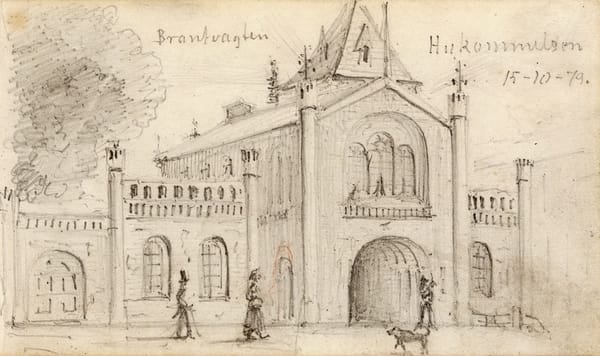 Brantvagten
Hukommelsen
15-10-79.